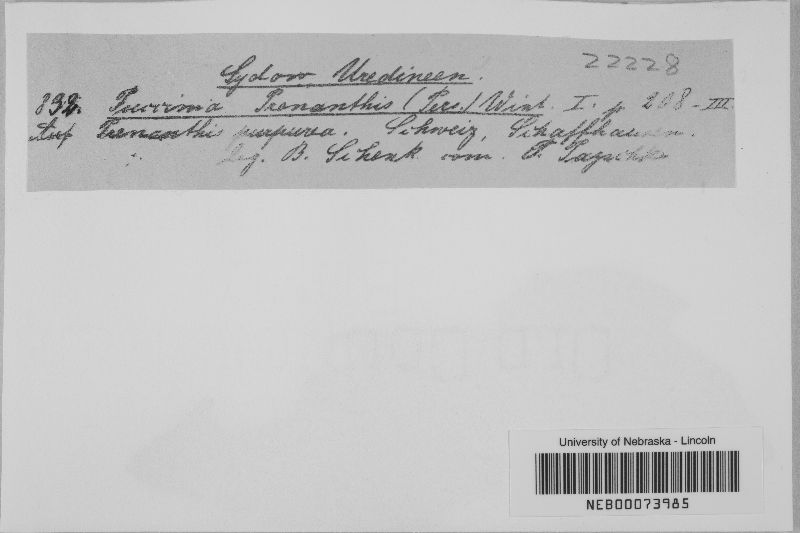 Sydow, Uredineen. 22228
892. Puccinia Prenanthis (Pers.) Wint. I. p 208 - III.
Auf Prenanthis purpurea. Schweiz, Schaffhausen.
leg. B. Schenk com.
University of Nebraska - Lincoln
NEB00073985